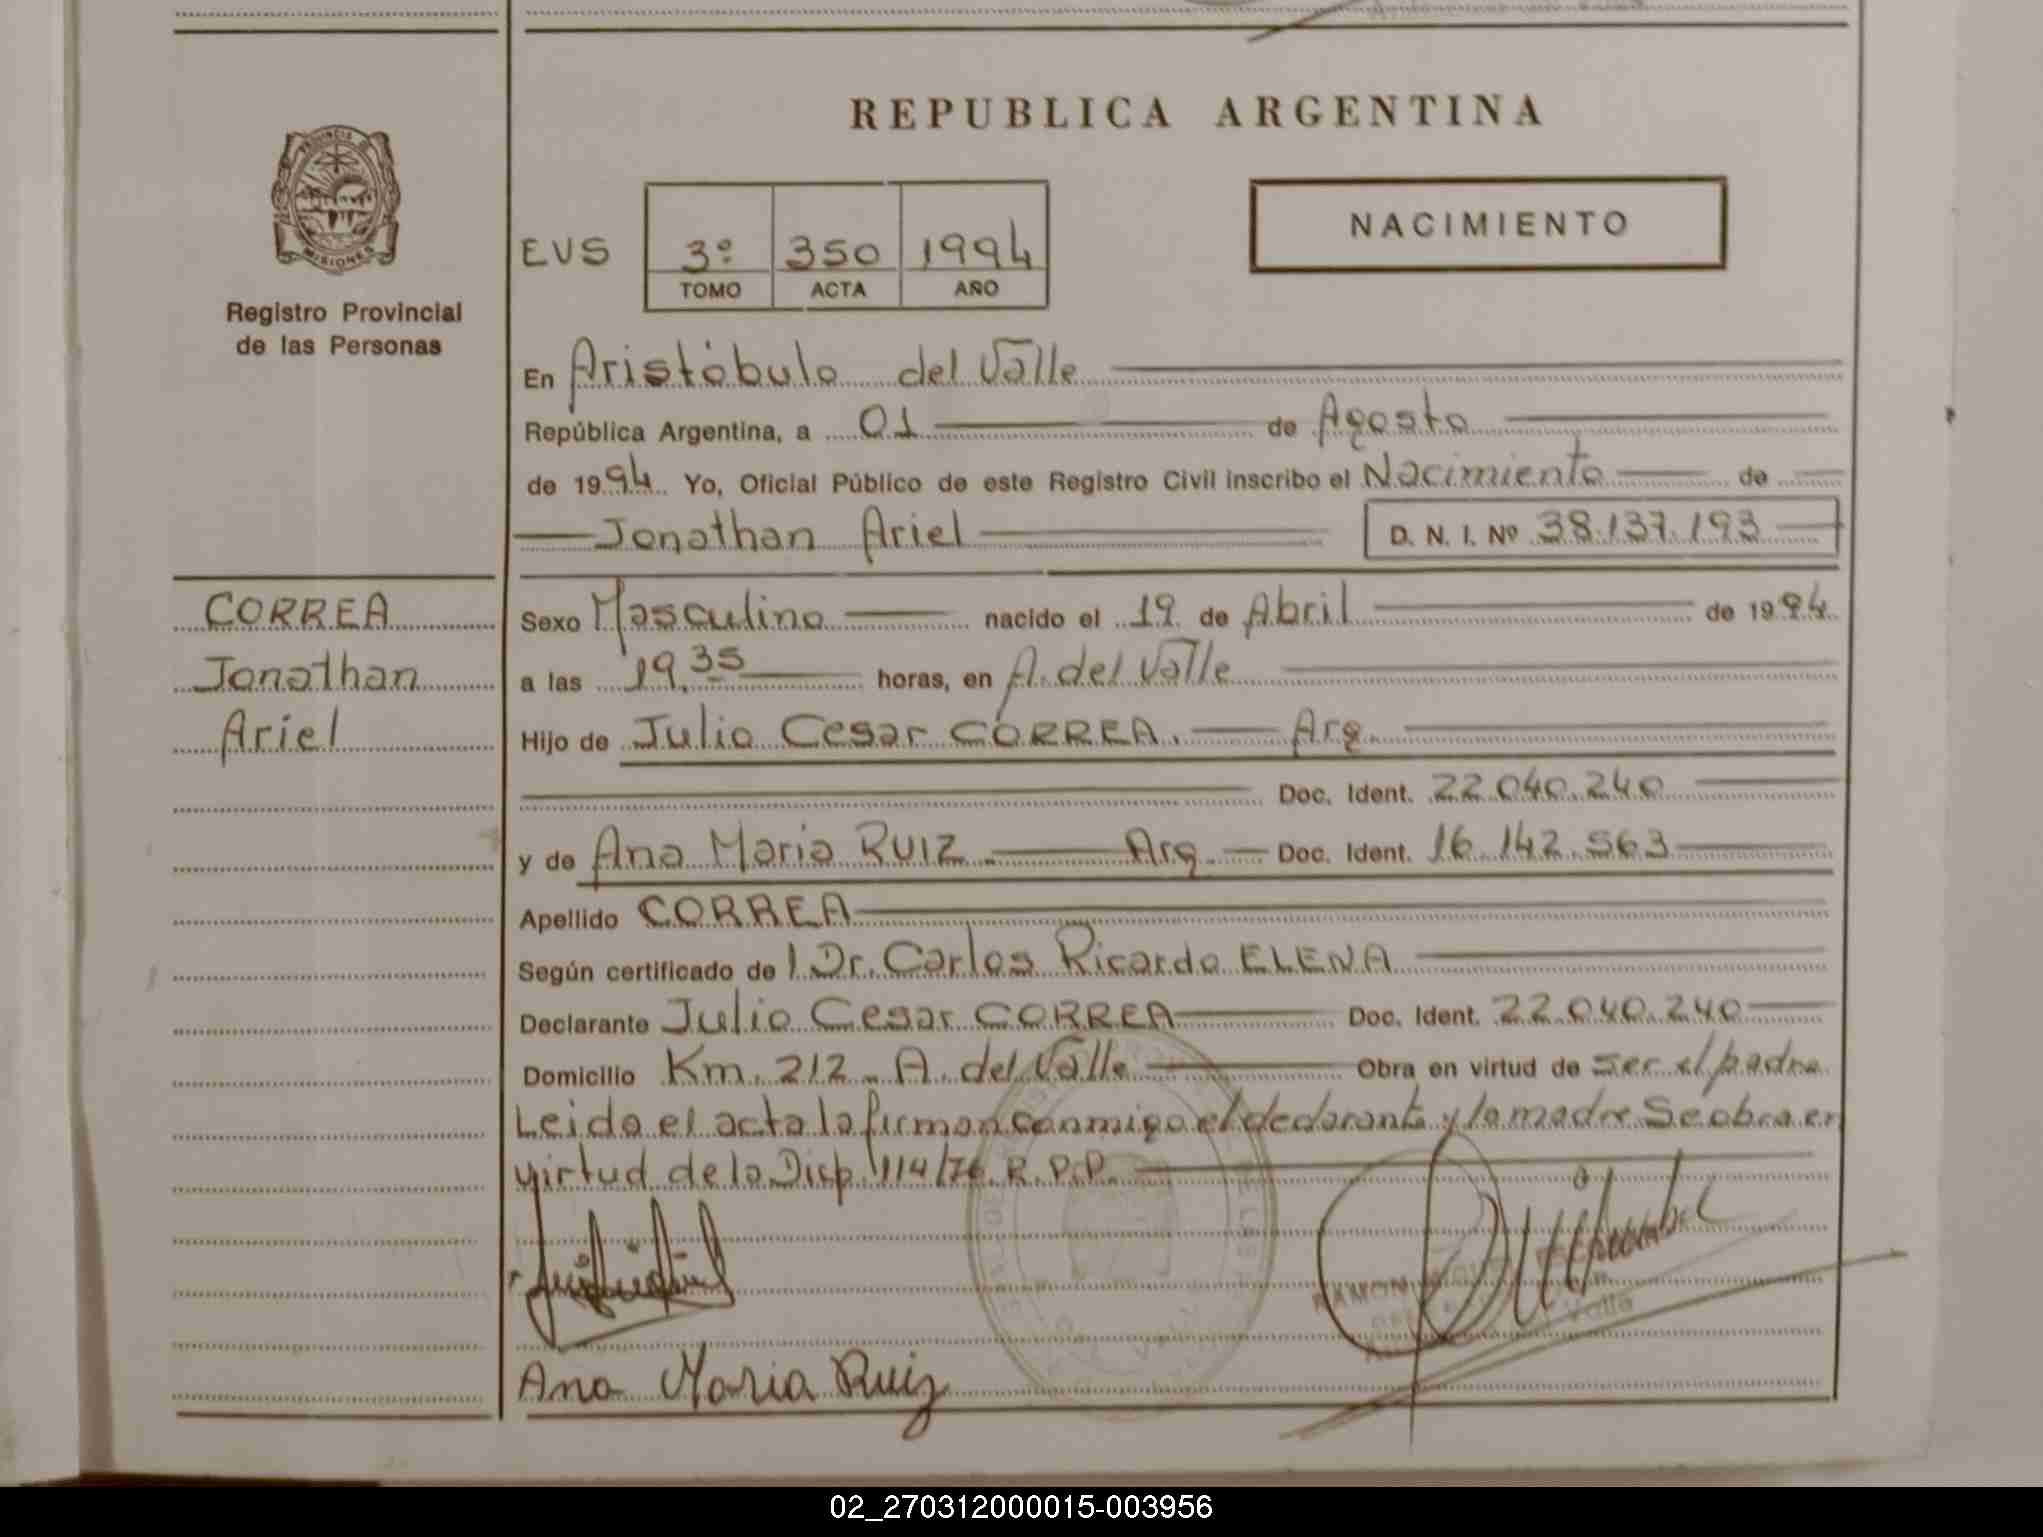 REPUBLICA ARGENTINA
PROVINCIA DE
MISIONES
Registro Provincial
de las Personas
NACIMIENTO
EVS 3º 350 1994
TOMO ACTA AÑO
En Aristóbulo del Valle
República Argentina, a 01 de Agosto
de 1994 Yo, Oficial Público de este Registro Civil inscribo el Nacimiento de
Jonathan Ariel D. N. I. Nº 38.137.193
CORREA
Jonathan
Ariel
Sexo Masculino nacido el 19 de Abril de 1994
a las 19.35 horas, en A. del Valle
Hijo de Julio Cesar CORREA. Arg.
Doc. Ident. 22.040.240
y de Ana Maria RUIZ. Arg. Doc. Ident. 16.142.563
Apellido CORREA
Según certificado de 1 Dr. Carlos Ricardo ELENA
Declarante Julio Cesar CORREA Doc. Ident. 22.040.240
Domicilio Km. 212 - A. del Valle Obra en virtud de ser el padre
Leida el acta la firman conmigo el declarante y la madre Se obra en
virtud de la Disp. 114/76. R.P.P.
RAMON
Valle
Ana Maria Ruiz
02_270312000015-003956